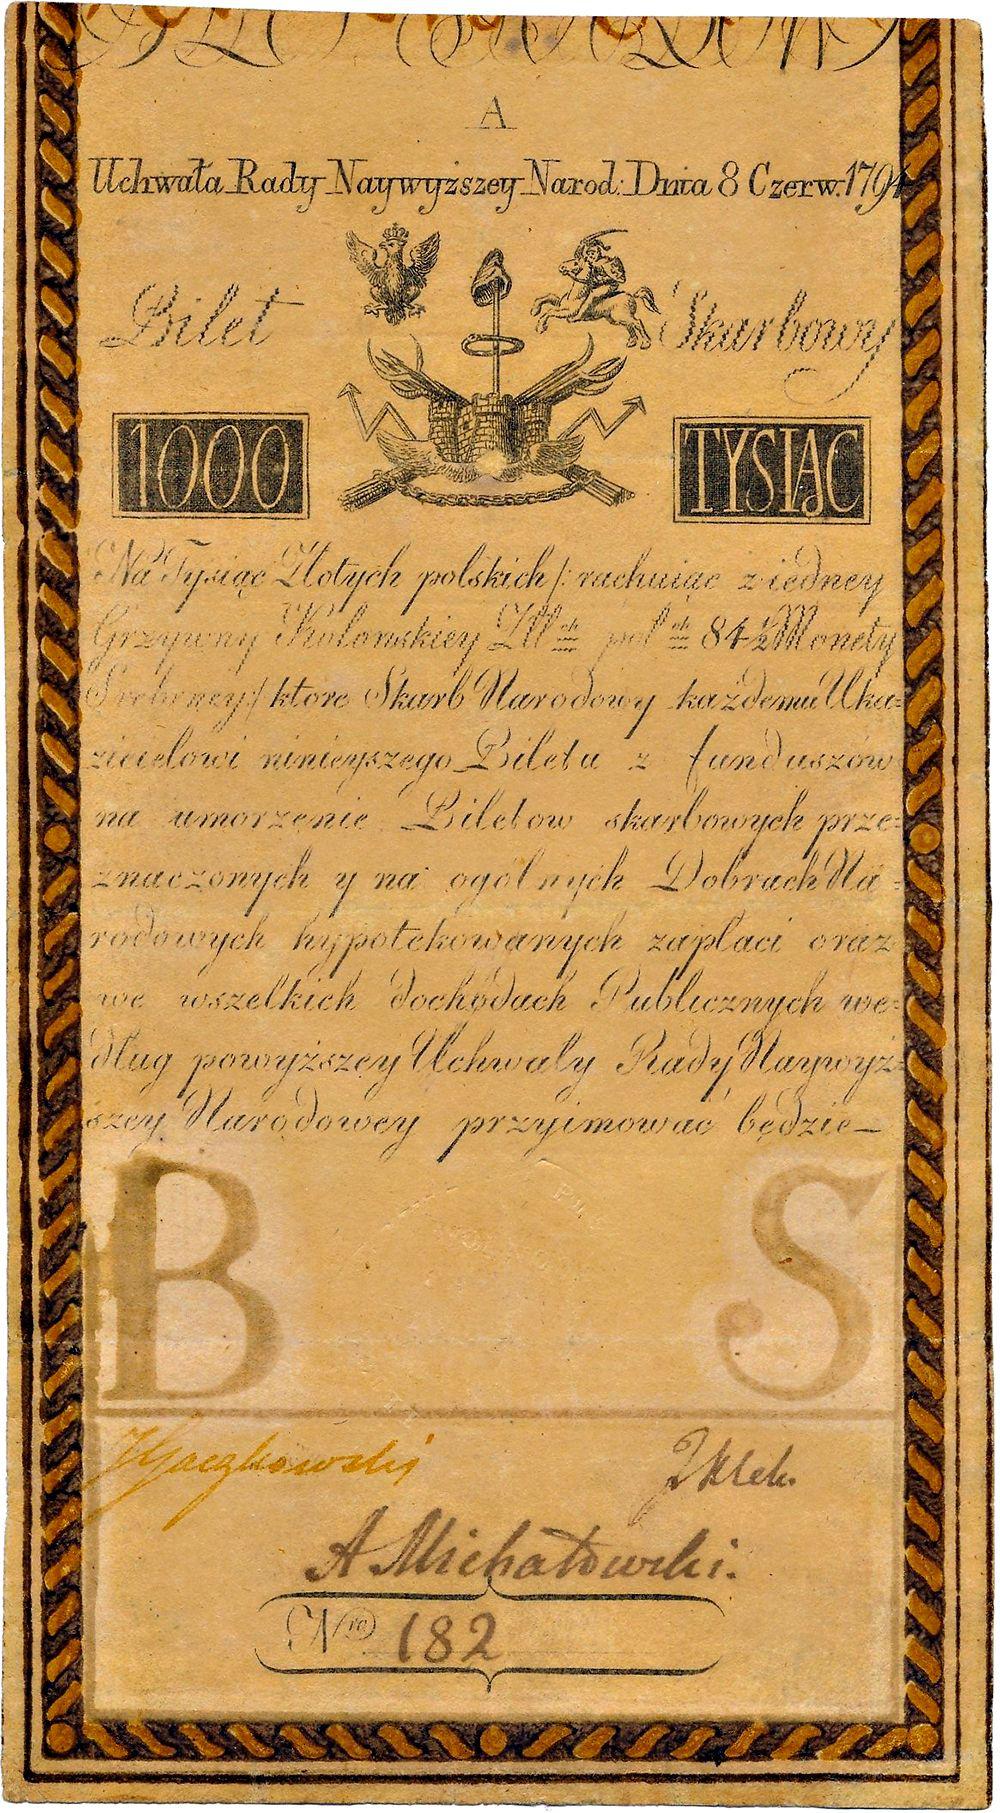 A
Uchwała Rady Naywyższey Narod: Dnia 8 Czerw. 1794
Bilet Skarbowy
1000 TYSIĄC
Na Tysiąc Złotych polskich /: rachuiąc z iedney
Grzywny Kolonskiey Zł ch pol ch 84½ Monety
Srebrney / ktore Skarb Narodowy każdemu Uka=
zicielowi ninieyszego Biletu z funduszów
na umorzenie Biletow skarbowych prze=
znaczonych y na ogólnych Dobrach Na=
rodowych hypotekowanych zapłaci oraz
we wszelkich dochodach Publicznych we=
dług powyższey Uchwały Rady Naywyż=
szey Narodowey przyimować będzie—
B S
A Michałowski.
Nro 182